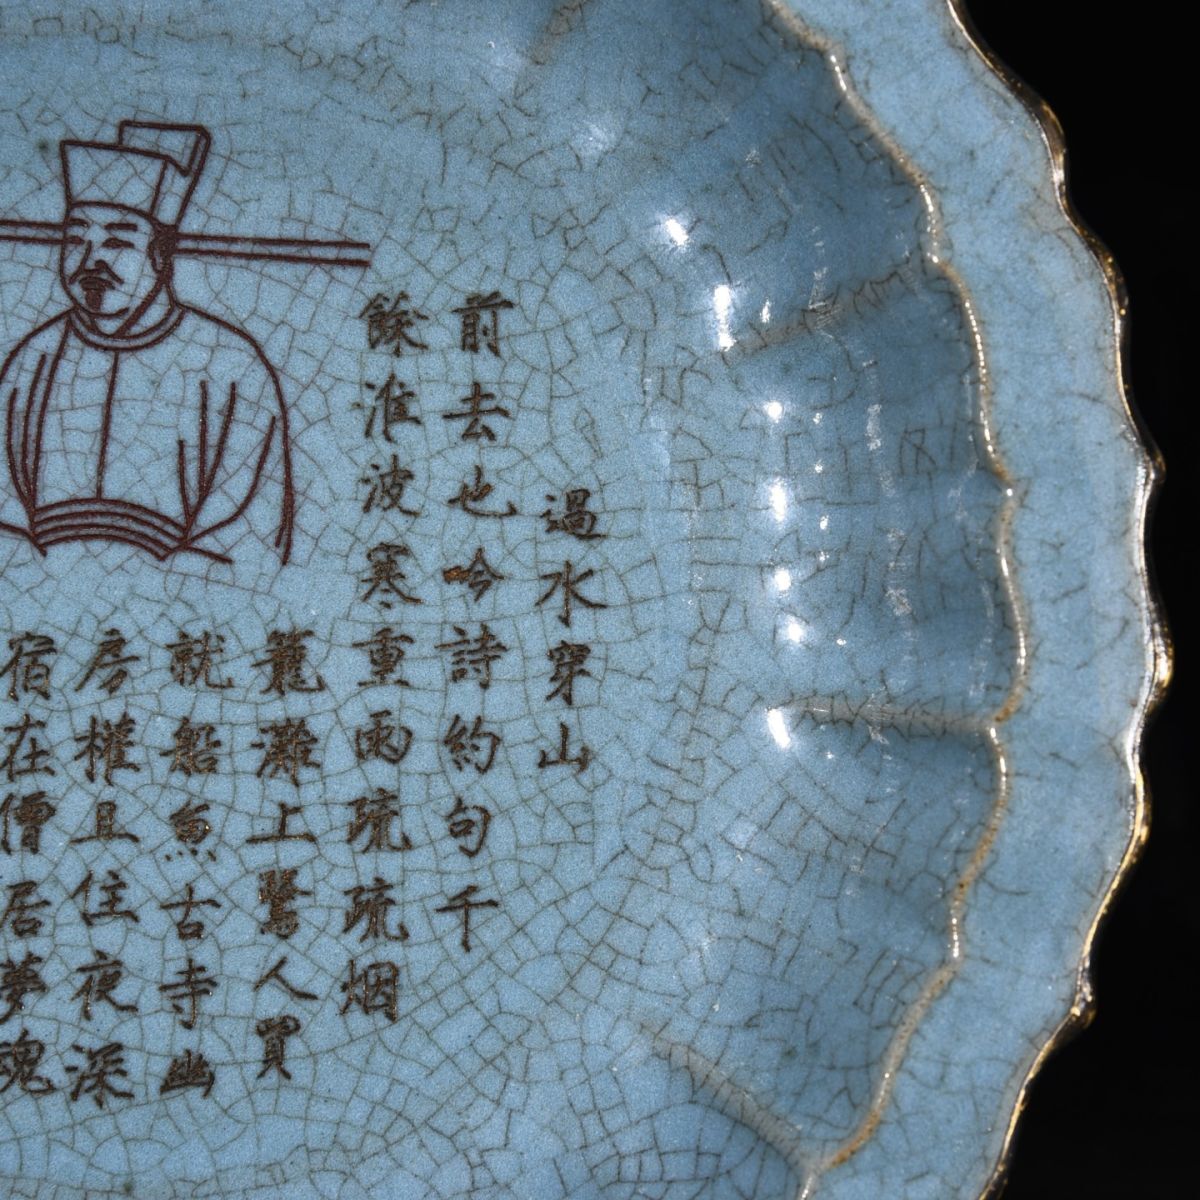 過水穿山
前去也吟詩約句千
餘淮波寒重雨疏疏烟
籠灘上鷺人買
就船魚古寺幽
房權且住夜深
宿在僧居夢魂